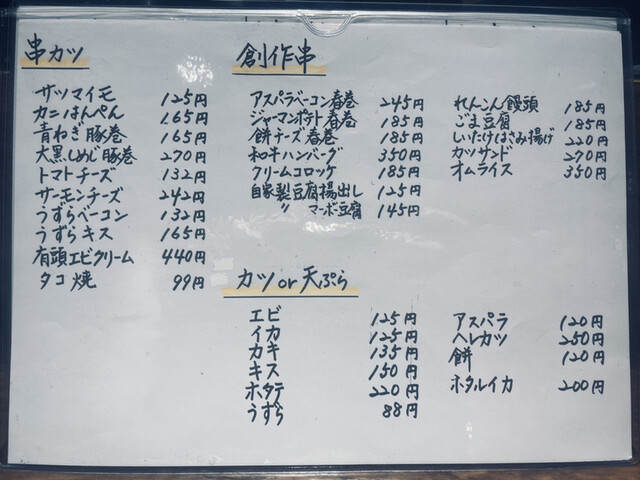 串カツ
サツマイモ 125円
カニはんぺん 165円
青ねぎ豚巻 165円
大黒しめじ豚巻 270円
トマトチーズ 132円
サーモンチーズ 242円
うずらベーコン 132円
うずらキス 165円
有頭エビクリーム 440円
タコ焼 99円
創作串
アスパラベーコン春巻 245円
ジャーマンポテト春巻 185円
餅チーズ春巻 185円
和牛ハンバーグ 350円
クリームコロッケ 185円
自家製豆腐揚出し 125円
〃 マーボ豆腐 145円
れんこん饅頭 185円
ごま豆腐 185円
しいたけはさみ揚げ 220円
カツサンド 270円
オムライス 350円
カツor天ぷら
エビ 125円
イカ 125円
カキ 135円
キス 150円
ホタテ 220円
うずら 88円
アスパラ 120円
ヘレカツ 250円
餅 120円
ホタルイカ 200円